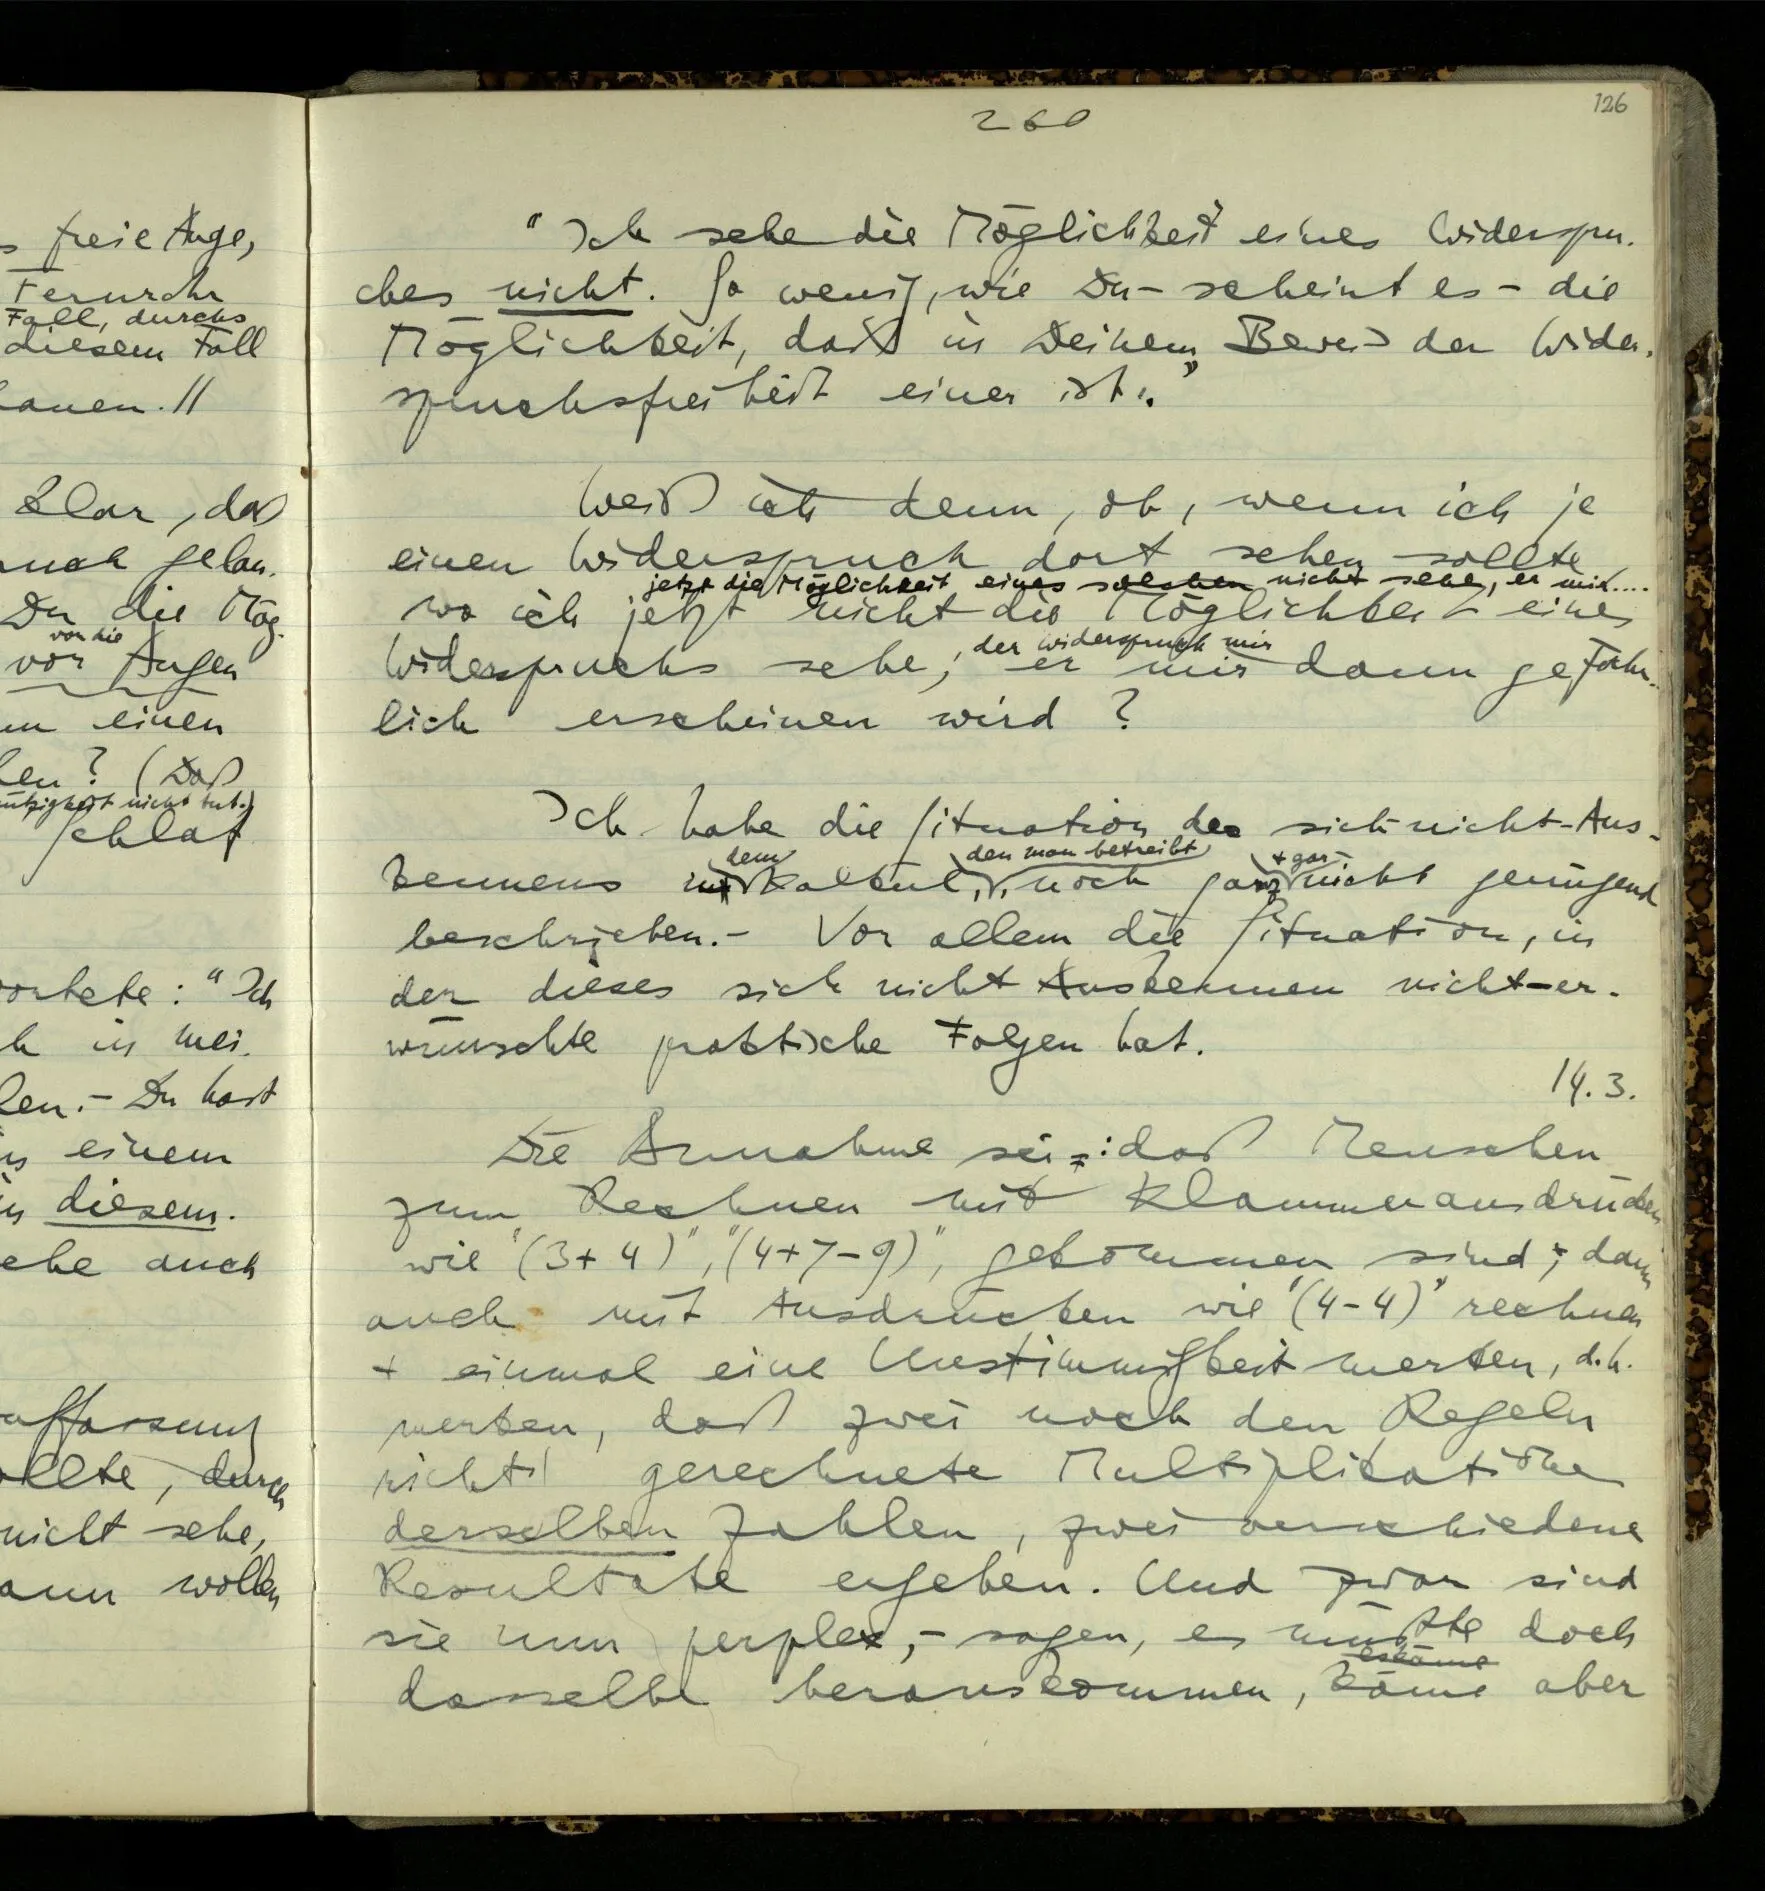 260
126
s freie Auge,
Fernrohr
Fall, durchs
diesem Fall
hauen. //
klar, daß
ruch gelan-
Du die Mög-
vor die
vor Augen
einen
? (Daß
nicht tut.)
Schlaf
wortete: "Ich
h in mei-
len. – Du hast
in einem
in diesem.
ehe auch
auffassung
ollte, durch
nicht sehe,
ann wollen
"Ich sehe die Möglichkeit eines Widerspru-
ches nicht. So wenig, wie Du – scheint es – die
Möglichkeit, daß in Deinem Beweis der Wider-
spruchsfreiheit einer ist."
Weiß ich denn, ob, wenn ich je
einen Widerspruch dort sehen sollte
jetzt die Möglichkeit eines solchen nicht sehe, er mir....
wo ich jetzt nicht die Möglichkeit eines
der Widerspruch mir
Widerspruchs sehe, er mir dann gefähr-
lich erscheinen wird?
Ich habe die Situation des sich-nicht-Aus-
dem den man betreibt + gar
kennens im Kalkül, noch ganz nicht genügend
beschrieben. – Vor allem die Situation, in
der dieses sich nicht Auskennen nicht-er-
wünschte praktische Folgen hat.
14.3.
Die Annahme sei: daß Menschen
zum Rechnen mit Klammerausdrücken
wie "(3+4)", "(4+7–9)", gekommen sind; dann
auch mit Ausdrücken wie "(4–4)" rechnen
+ einmal eine Unstimmigkeit merken, d.h.
merken, daß zwei nach den Regeln
richtig gerechnete Multiplikationen
derselben Zahlen, zwei verschiedene
Resultate ergeben. Und zwar sind
sie nun perplex, – sagen, es müßte doch
es käme
dasselbe herauskommen, käme aber